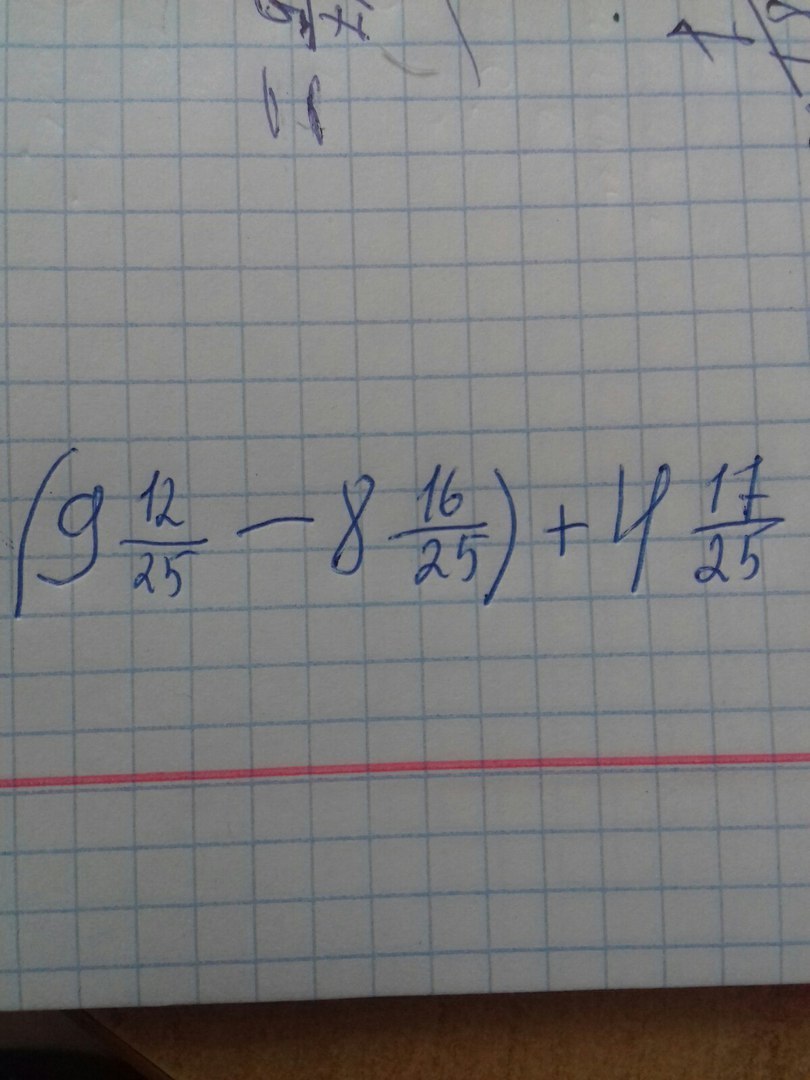 (9 12/25 − 8 16/25) + 4 17/25